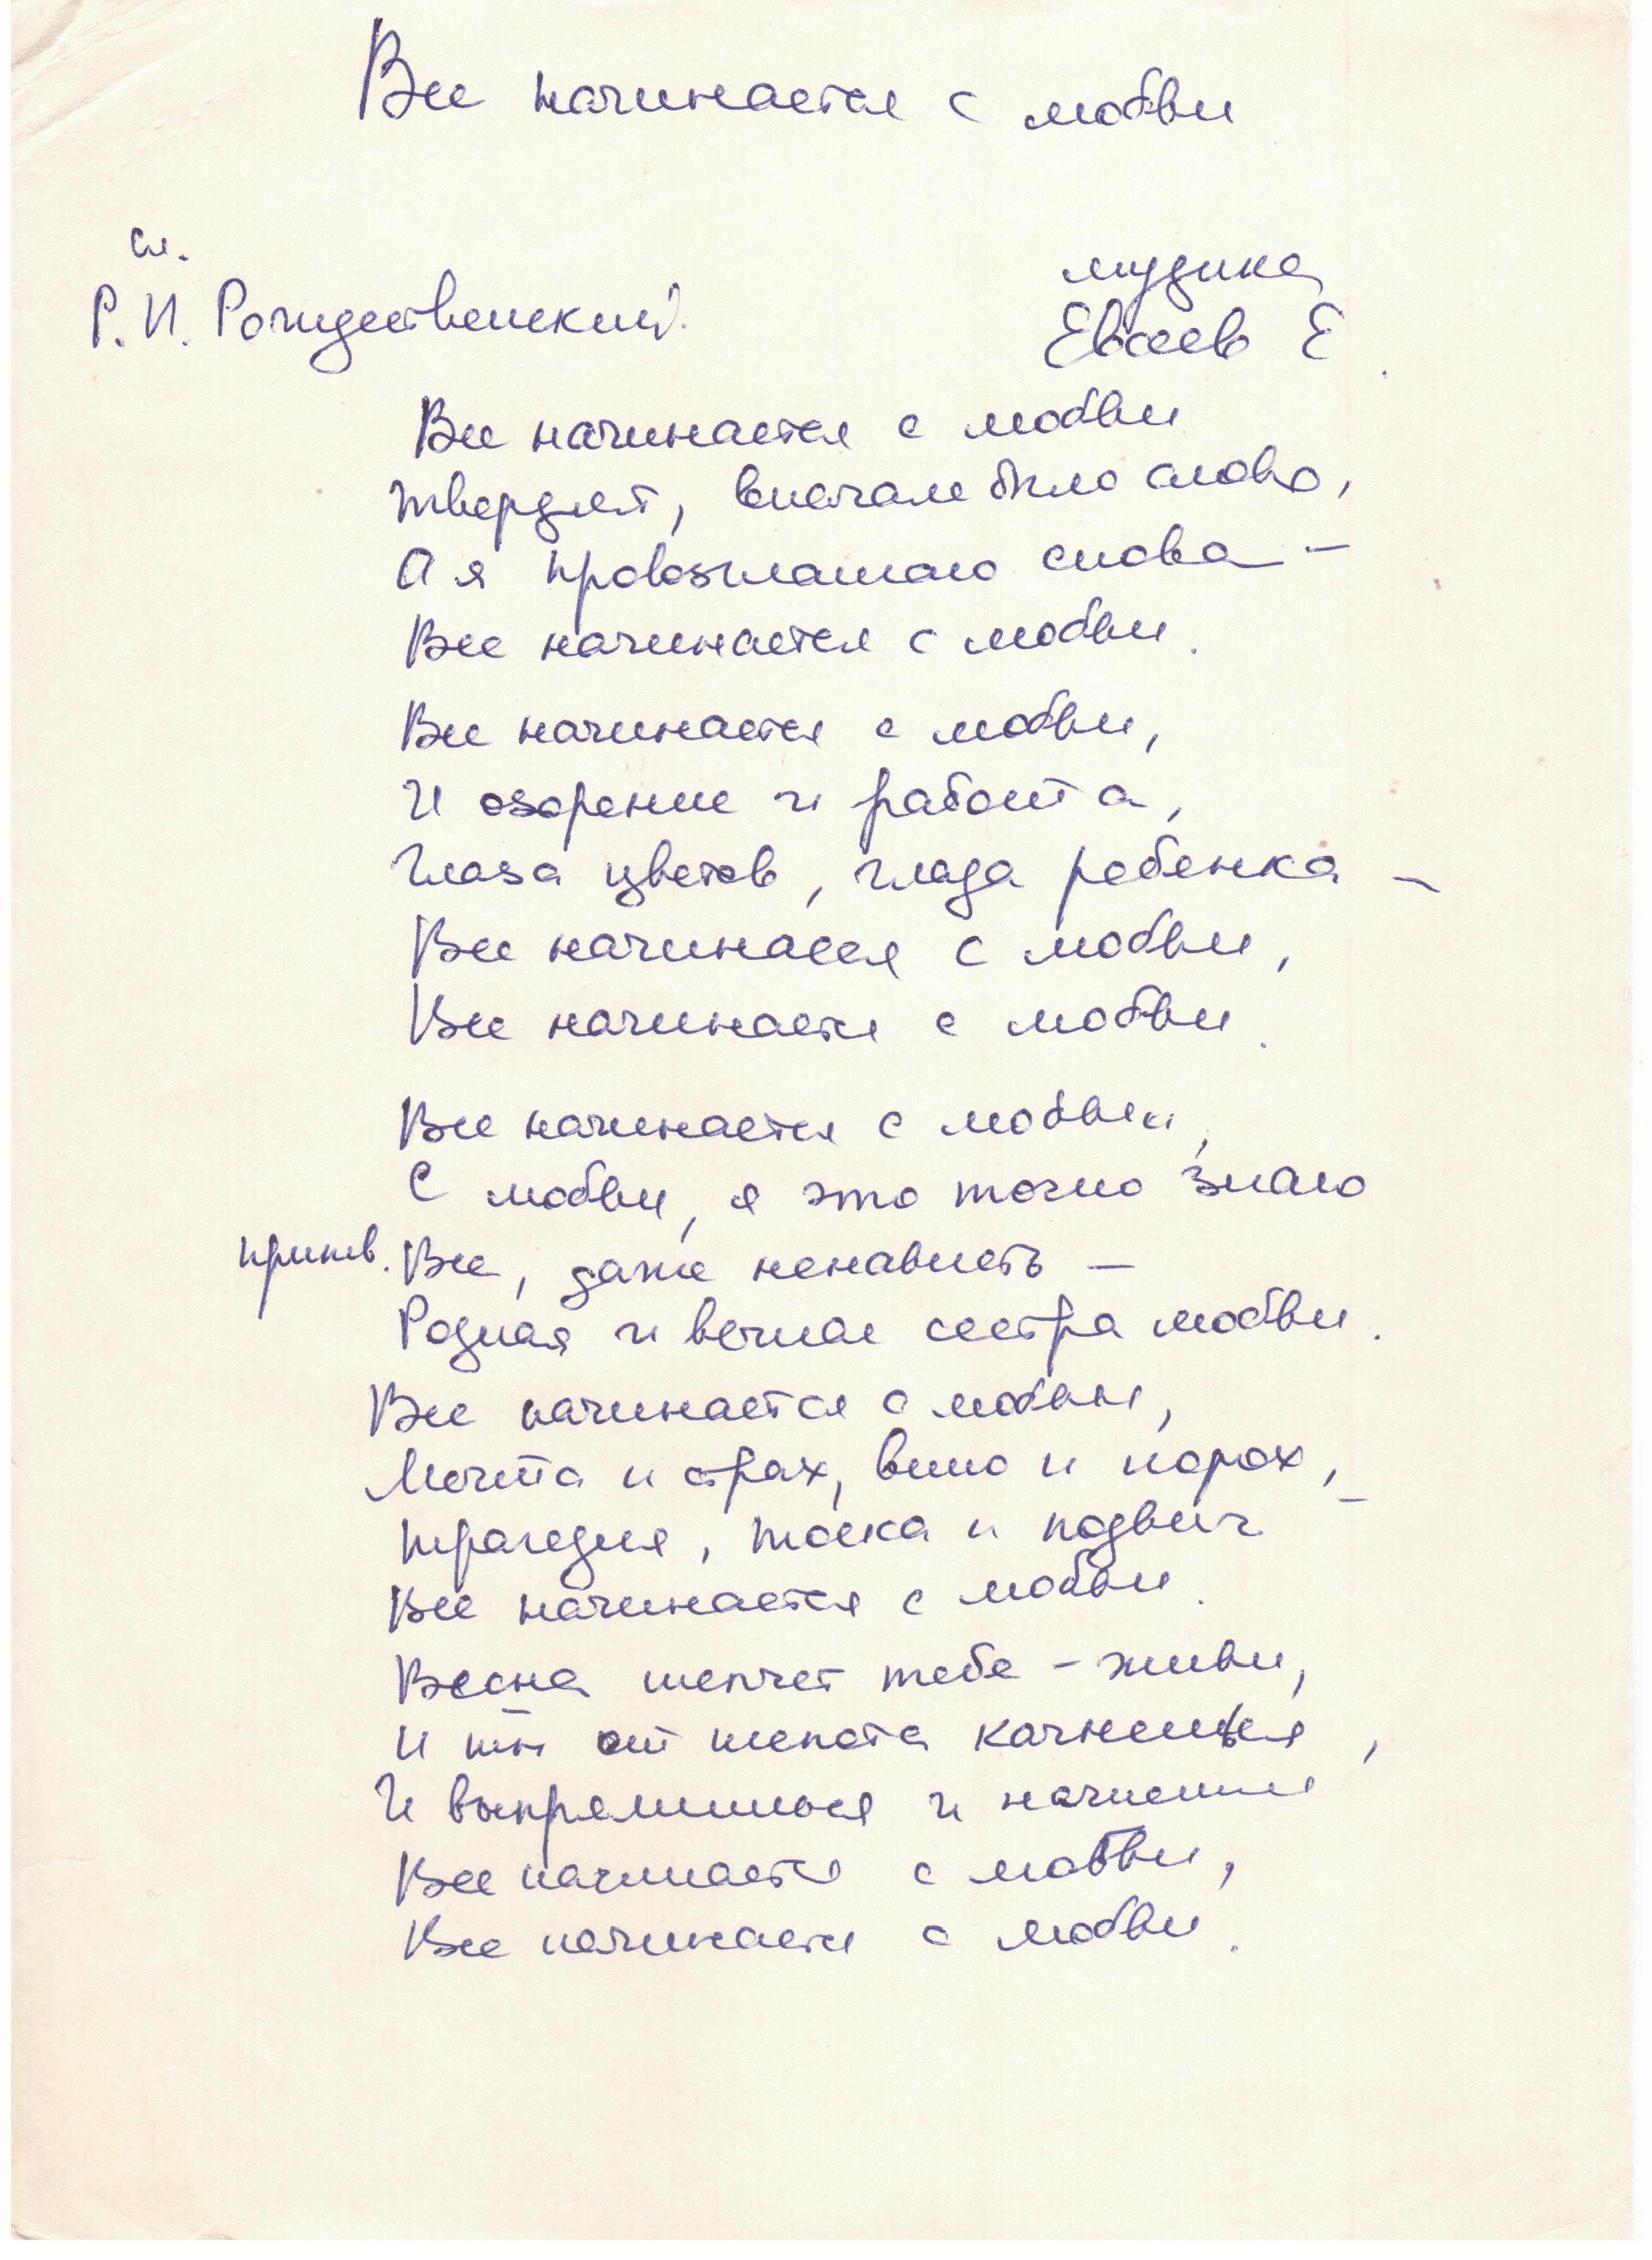 Все начинается с любви
сл.
Р. И. Рождественский.
музыка
Евсеев Е.
Все начинается с любви
твердят, вначале было слово,
А я провозглашаю снова –
Все начинается с любви.
Все начинается с любви,
И озорение и работа,
Глаза цветов, глаза ребенка –
Все начинаеся с любви,
Все начинается с любви.
Все начинается с любви,
С любви, я это точно знаю
припев. Все, даже ненависть –
Родная и вечная сестра любви.
Все начинается с любви,
Мечта и страх, вино и порох,
трагедия, тоска и подвиг –
Все начинается с любви.
Весна шепчет тебе – живи,
И ты от шепота качнешься,
И выпрямишься и начнешься
Все начинается с любви,
Все начинается с любви.